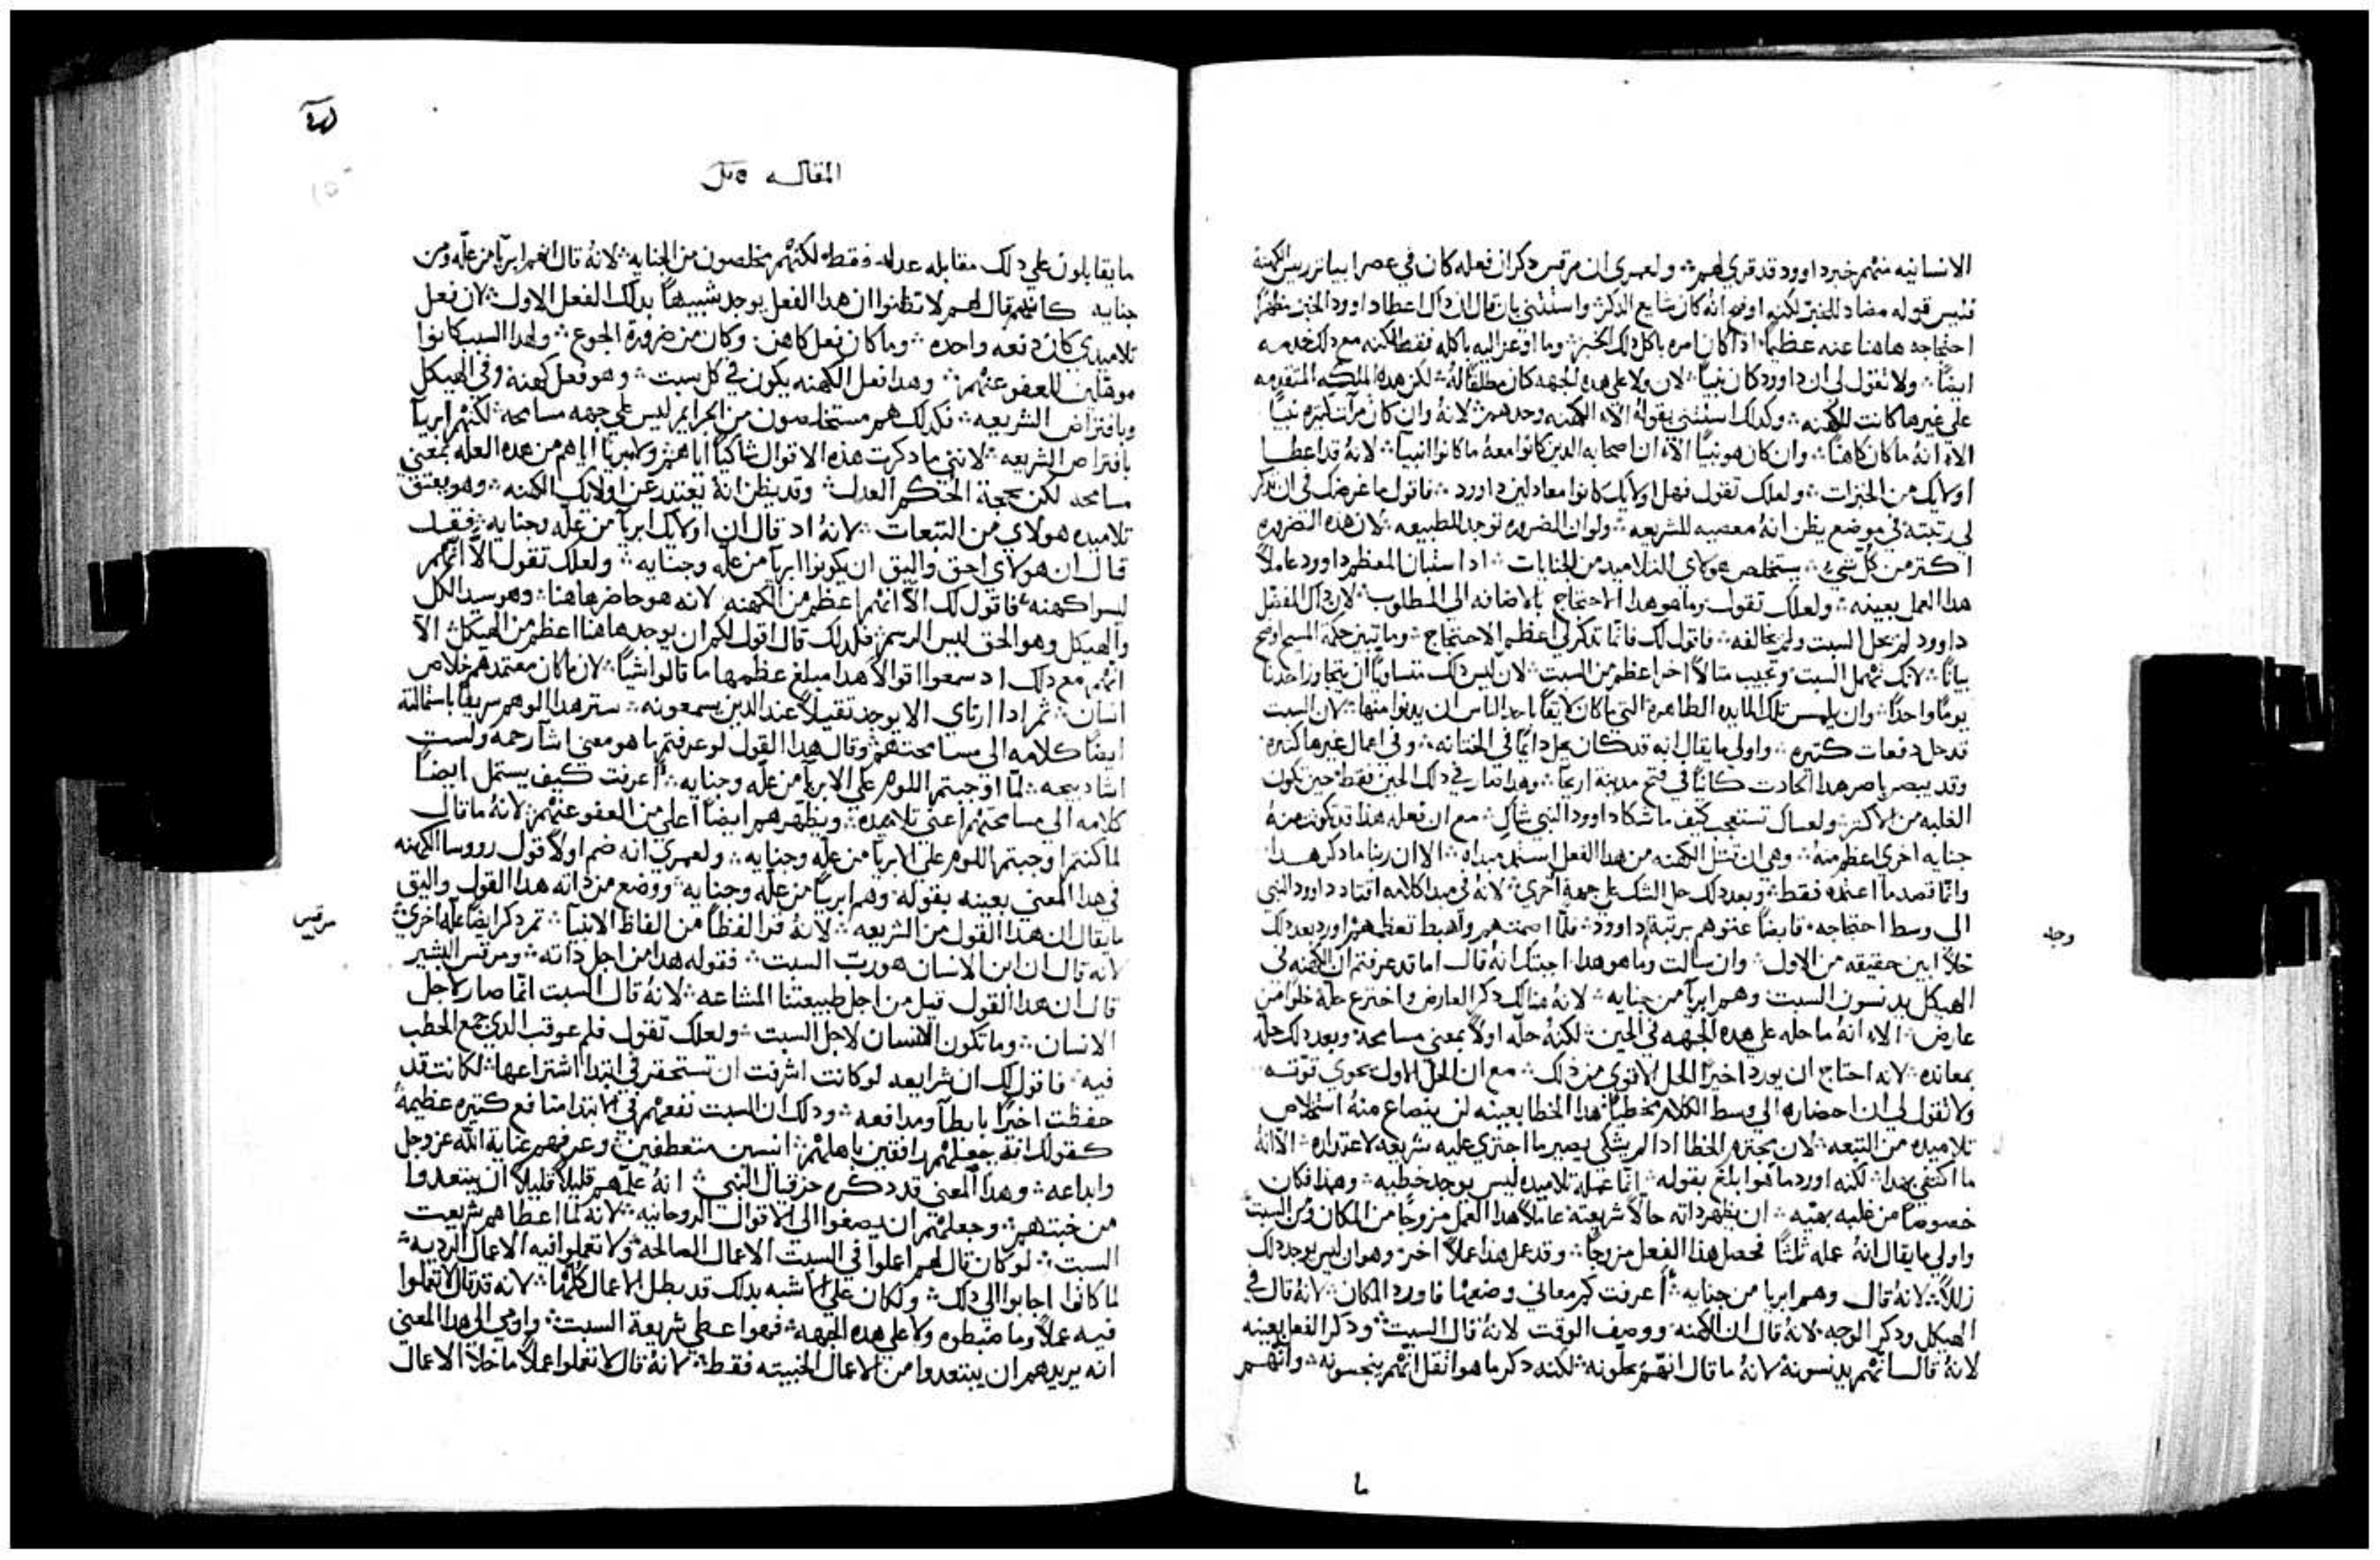 الانسانيه منهم خبر داوود قد قري لهم ولعمري ان مرقس دكر ان فعله كان في عصر ابياتر رييس الكهنة
فليس قوله مضاد للخبر لكنه اوضح انه كان شايع الدكر واستثني بان قال ان داك اعطا داوود الخبز مظهرًا
احتجاجه هاهنا عنه عظيمًا اذا كان امره باكل دلك الخبز وما اوعز اليه باكله فقط لكنه مع دلك خدمه
ايضًا ولا تقول لي ان داوود كان نبيًا لان ولا علي هده الجهه كان مطلقًا له لكن هده الملكه المتقدمه
علي غيرها كانت للكهنه وكدلك استثني بقوله الاّ الكهنه وحدهم لانه وان كان مرآت كثيره نبيًا
الاّ انه ما كان كاهنًا وان كان هو نبيًا الاّ ان اصحابه الدين كانوا معه ما كانوا انبيآ لانه قد اعطا
اوليك من الخبزات ولعلك تقول فهل اوليك كانوا معادلين داوود فاقول ما غرضك في ان تدكر
لي رتبته في موضع يظن انه معصيه للشريعه ولو ان الضروره توجد للطبيعه لان هده الضروره
اكتر من كل شيء يستخلص هولاي التلاميد من الجنايات ادا استبان المعظم داوود عاملاً
هدا العمل بعينه ولعلك تقول وما هو هدا الاحتجاج بالاضافه الي المطلوب لان داك المفضل
داوود لم يحل السبت ولم يخالفه فاقول لك فانما تدكر لي اعظم الاحتجاج وما تبين حكمة المسيح اوضح
بيانًا لانك تهمل السبت وتجيب مثالاً اخر اعظم من السبت لان ليس دلك متساويًا ان يتجاوز احدنا
يومًا واحدًا وان يلمس تلك المايده الطاهره التي ما كان لايقًا باحد الناس ان يدنوا منها لان السبت
قد حل دفعات كتيره واولي ما يقال انه قد كان يحل دايمًا في الختانه وفي اعمال غيرها كتيره
وقد يبصر باصر هدا الحادت كاينًا في فتح مدينة اريحا وهدا صار في دلك الحين فقط حين تكون
الغلبه من الاكثر ولعساك تستعجب كيف ما شكا داوود النبي شاكٍ مع ان فعله هدا قد يكون منه
جنايه اخري اعظم منه وهي ان قتل الكهنه من هدا الفعل استمد مبداه الا ان ربنا ما دكر هدا
وانما قصد ما اعتمده فقط وبعد دلك حل الشك علي جهة اخري لانه في مبدا كلامه اقتاد داوود النبي
الي وسط احتجاجه قابضًا عتوهم برتبة داوود فلما اصمتهم واهبط تعظمهم اورد بعد دلك
وجله
حلاً ابين حقيقه من الاول وان سالت وما هو هدا اجبتك انه قال اما قد عرفتم ان الكهنه في
الهيكل يدنسون السبت وهم ابريآ من جنايه لانه هنالك دكر العارض واخترع حله خلوًا من
عارض الاّ انه ما حله علي هده الجهه في الحين لكنه حله اولاً بمعني مسامحة وبعد دلك حله
بمعانده لانه احتاج ان يورد اخيرًا الحل الاقوي من دلك مع ان الحل الاول يحوي قوته
ولا تقول لي ان احضاره الي وسط الكلام مخطيًا هدا الخطا بعينه لن ينصاع منه استخلاص
تلاميده من التبعه لان مجترم الخطا ادا لم يشكي يصير ما اجتري عليه شريعه لاعتداره الاّ انه
ما اكتفي بهدا لكنه اورد ما هو ابلغ بقوله انما عمله تلاميده ليس يوجد خطيه وهدا فكان
خصوصًا من غلبه بهيه ان يظهر داته حالاً شريعته عاملاً هدا العمل مزوجًا من المكان ومن السبت
واولي ما يقال انه عمله ثلثًا فحصل هدا الفعل مزوجًا وقد عمل هدا عملاً اخر وهو ان ليس يوجد دلك
زللاً لانه قال وهم ابريا من جنايه أعرفت كم معاني وضعها فاورد المكان لانه قال في
الهيكل ودكر الوجه لانه قال ان الكهنه ووصف الوقت لانه قال السبت ودكر الفعل بعينه
لانه قال انهم يدنسونه لانه ما قال انهم يحلّونه لكنه دكر ما هو اتقل انهم ينجسونه وانهم
المقاله
ما يقابلون علي دلك مقابله عدله فقط لكنهم مخلصون من الجنايه لانه قال انهم ابريآ من علّه ومن
جنايه كانه قال لهم لا تظنوا ان هدا الفعل يوجد شبيهًا بدلك الفعل الاول لان فعل
تلاميدي كان دفعه واحده وما كان فعل كاهن وكان من ضرورة الجوع ولهدا السبب كانوا
موهلين للعفو عنهم وهدا فعل الكهنه يكون في كل سبت وهو فعل كهنة وفي الهيكل
وبافتراض الشريعه فكدلك هم مستخلصون من الجرايم ليس علي جهه مسامحه لكنهم ابريآ
بافتراض الشريعه لانني ما دكرت هذه الاقوال شاكيًا اياهم ولا مبريًا اياهم من هده العله بمعني
مسامحه لكن بحجة الحكم العدل وقد يظن انه يعتدر عن اوليك الكهنه وهو يعتق
تلاميده هولاي من التبعات لانه اد قال ان اوليك ابريآ من علّه وجنايه فقد
قال ان هولاي احق واليق ان يكونوا ابريآ من علّه وجنايه ولعلك تقول الاّ انهم
ليسوا كهنه فاقول لك الاّ انهم اعظم من الكهنه لانه هو حاضر هاهنا وهو سيد الكل
والهيكل وهو الحق ليس الرسم فلدلك قال اقول لكم ان يوجد هاهنا اعظم من الهيكل الاّ
انهم مع دلك اد سمعوا اقوالاً هدا مبلغ عظمها ما قالوا شيًا لان ما كان معتمدهم خلاص
انسان ثم اذا ارتاي الا يوجد تقيلاً عند الدين يسمعونه ستر هدا الوهم سريعًا باستمالته
ايضًا كلامه الي مسامحتهم وقال هدا القول لو عرفتم ما هو معني اشآ رحمه ولست
اشا دبيحه لمّا اوجبتم اللوم علي الابريآ من علّه وجنايه أعرفت كيف يستميل ايضًا
كلامه الي مسامحتهم اعني تلاميده ويظهرهم ايضًا اعلي من العفو عنهم لانه ما قال
لما كنتم اوجبتم اللوم علي الابريآ من علّه وجنايه ولعمري انه ضم اولاً قول رووسا الكهنه
في هدا المعني بعينه بقوله وهم ابريآ من علّه وجنايه ووضع من داته هدا القول واليق
ما يقال ان هدا القول من الشريعه لانه قرا لفظًا من الفاظ الانبيآ تم دكر ايضًا علّه اخري
مرقس
لانه قال ان ابن الانسان هو ربّ السبت فقوله هدا من اجل داته ومرقس البشير
قال ان هدا القول قيل من اجل طبيعتنا المشاعه لانه قال السبت انما صار لاجل
الانسان وما تكون الانسان لاجل السبت ولعلك تقول فلم عوقب الدي جمع الحطب
فيه فاقول لك ان شرايعه لو كانت اشرفت ان تستحقر في ابتدا اشتراعها لكانت قد
حفظت اخيرًا بابطآ ومدافعه ودلك ان السبت نفعهم في الابتدا منافع كتيره عظيمة
كقولك انه جعلهم رافقين باهلهم انسين متعطفين وعرفهم عناية الله عز وجل
وابداعه وهدا المعني قد دكره حزقيال النبي انه علّمهم قليلاً قليلاً ان يبتعدوا
من خبتهم وجعلهم ان يصغوا الي الاقوال الروحانيه لانه لما اعطاهم شريعت
السبت لو كان قال لهم اعملوا في السبت الاعمال الصالحه ولا تعملوا فيه الاعمال الرديه
لما كانوا اجابوا الي دلك ولكان علي ما اشبه بدلك قد بطل الاعمال كلها لانه قد قال لا تعملوا
فيه عملاً وما ضبطوه ولا علي هده الجهه فهو اعطي شريعة السبت واومي الي هدا المعني
انه يريدهم ان يبتعدوا من الاعمال الخبيته فقط لانه قال لا تعملوا عملاً ما خلا الاعمال